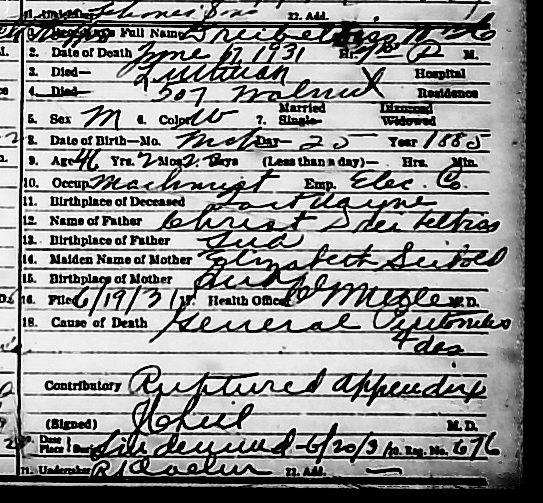 22. Add.
1. Full Name Dreibelbiss
2. Date of Death June 17 1931 Hr. P M.
3. Died— Lutheran Hospital
4. Died— 507 Walnut Residence
5. Sex M 6. Color W 7. Married Single— Divorced Widowed
8. Date of Birth—Mo. Mch Day 25 Year 1885
9. Age 46 Yrs. 2 Mos. Days (Less than a day)— Hrs. Min.
10. Occup. Machinist Emp. Elec. Co.
11. Birthplace of Deceased Fort Wayne
12. Name of Father Christ Dreibelbiss
13. Birthplace of Father Ind
14. Maiden Name of Mother Elizabeth Seibold
15. Birthplace of Mother
16. Filed 6/19/31 17. Health Officer M. D.
18. Cause of Death General Peritonitis
4 das
Contributory Ruptured appendix
(Signed) M. D.
Date Place Burial Lindenwood 6/20/31 20. Reg. No. 676
21. Undertaker 22. Add. —